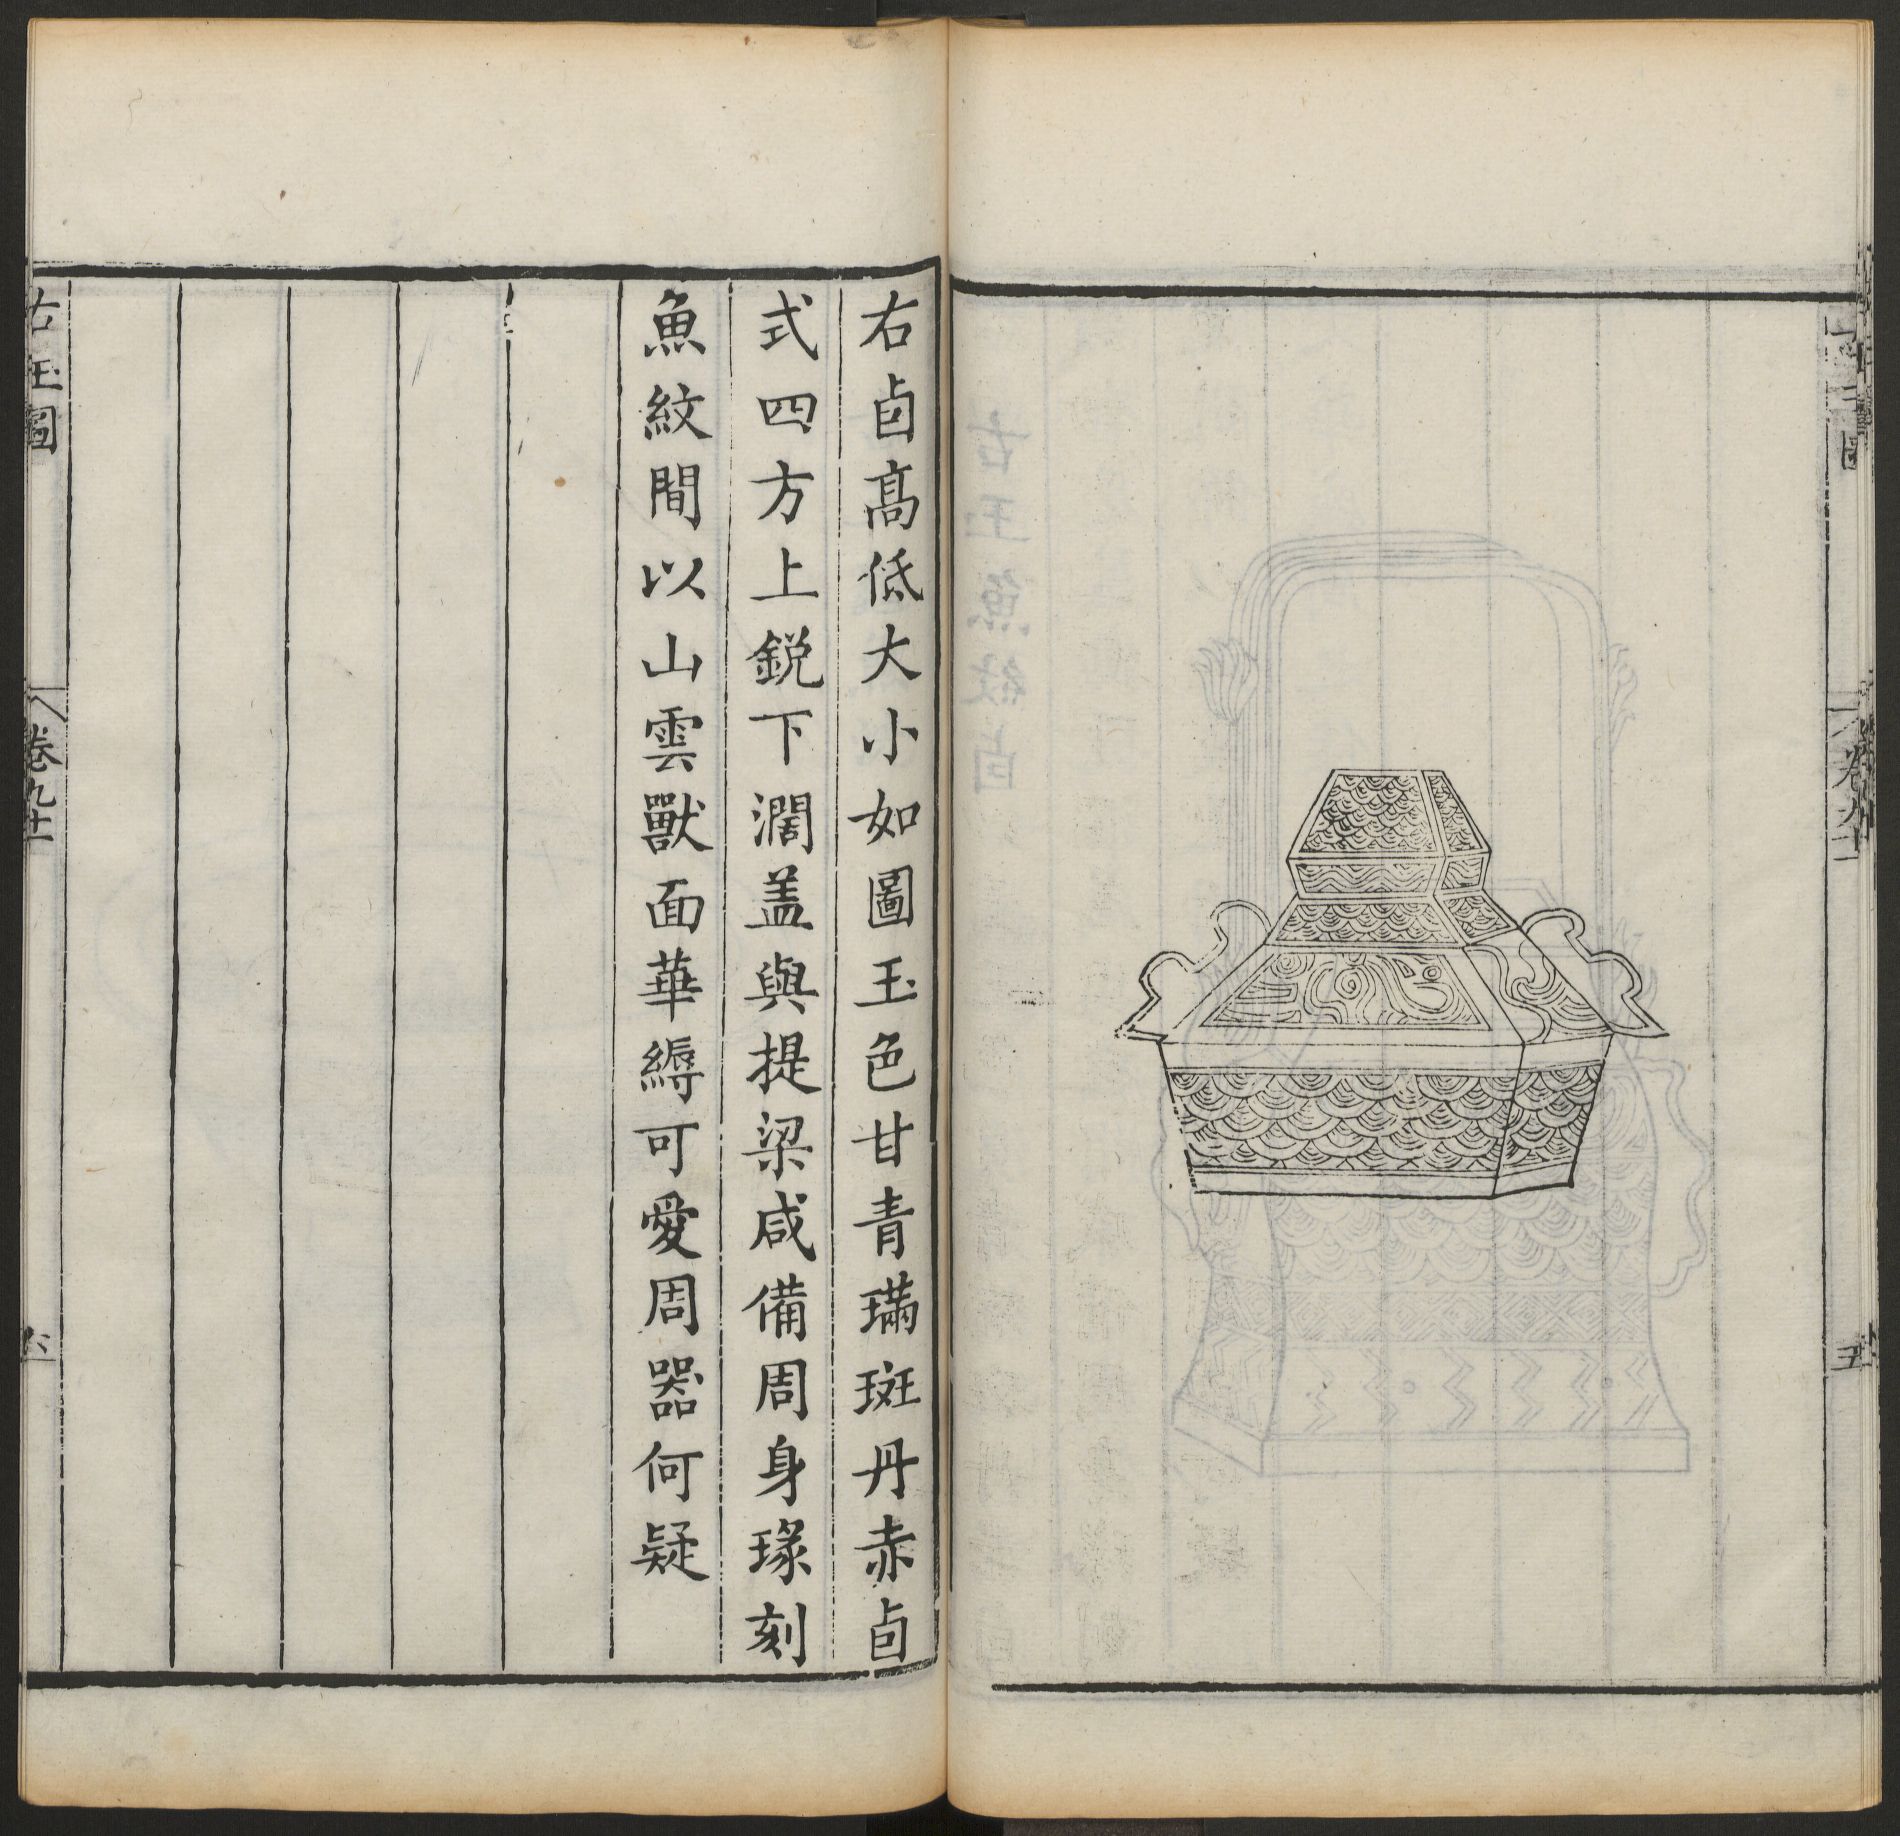 右卣高低大小如圖玉色甘青璊斑丹赤卣
式四方上鋭下濶盖與提梁咸備周身瑑刻
魚紋間以山雲獸面華縟可愛周器何疑
古玉圖
卷九十一